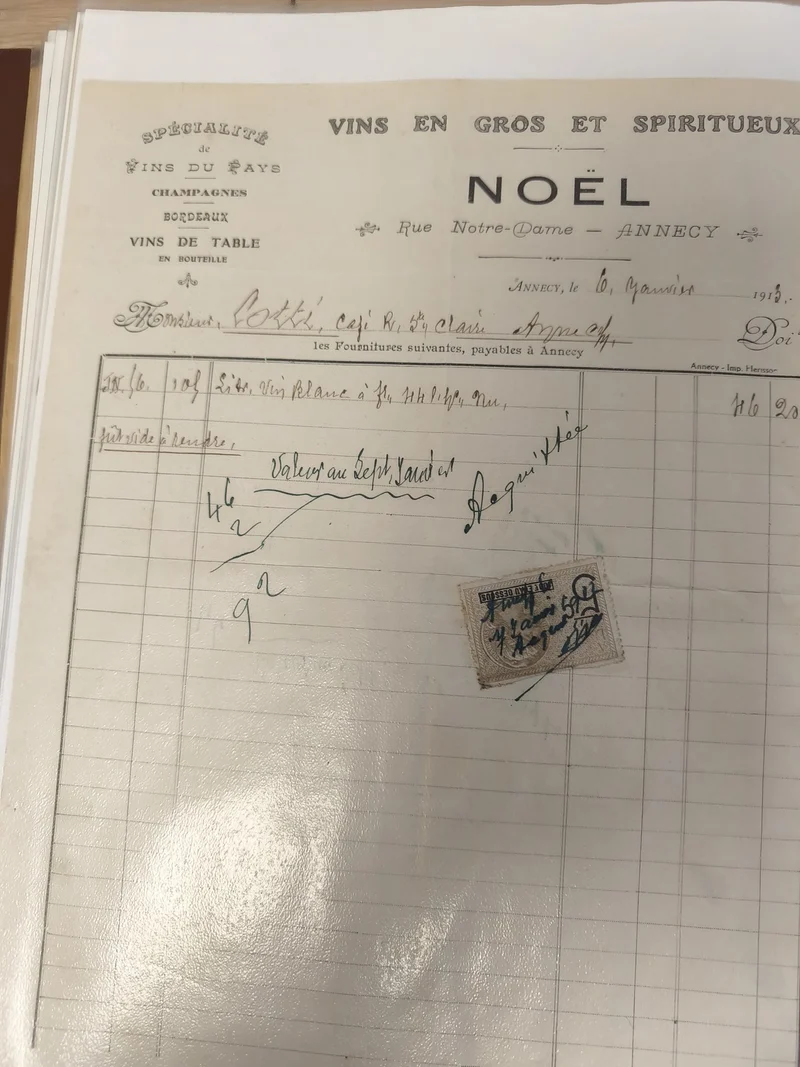 SPÉCIALITÉ
de
VINS DU PAYS
CHAMPAGNES
BORDEAUX
VINS DE TABLE
EN BOUTEILLE
VINS EN GROS ET SPIRITUEUX
NOËL
Rue Notre-Dame — ANNECY
ANNECY, le 6, Janvier 1913.
Monsieur, Café R, Ste Claire Annecy,
Doi
les Fournitures suivantes, payables à Annecy
Annecy - Imp. Hérisson
105 Litr, Vin Blanc à fr, 44 l'h, Nu, 46 20
fût vide à rendre,
Valeur au Sept, Janvier
Acquittée
46
2
92